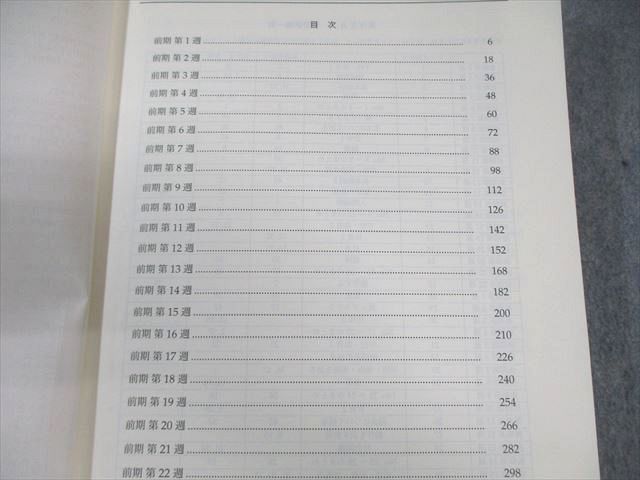 目 次
前期 第 1 週 6
前期 第 2 週 18
前期 第 3 週 36
前期 第 4 週 48
前期 第 5 週 60
前期 第 6 週 72
前期 第 7 週 88
前期 第 8 週 98
前期 第 9 週 112
前期 第 10 週 126
前期 第 11 週 142
前期 第 12 週 152
前期 第 13 週 168
前期 第 14 週 182
前期 第 15 週 200
前期 第 16 週 210
前期 第 17 週 226
前期 第 18 週 240
前期 第 19 週 254
前期 第 20 週 266
前期 第 21 週 282
前期 第 22 週 298